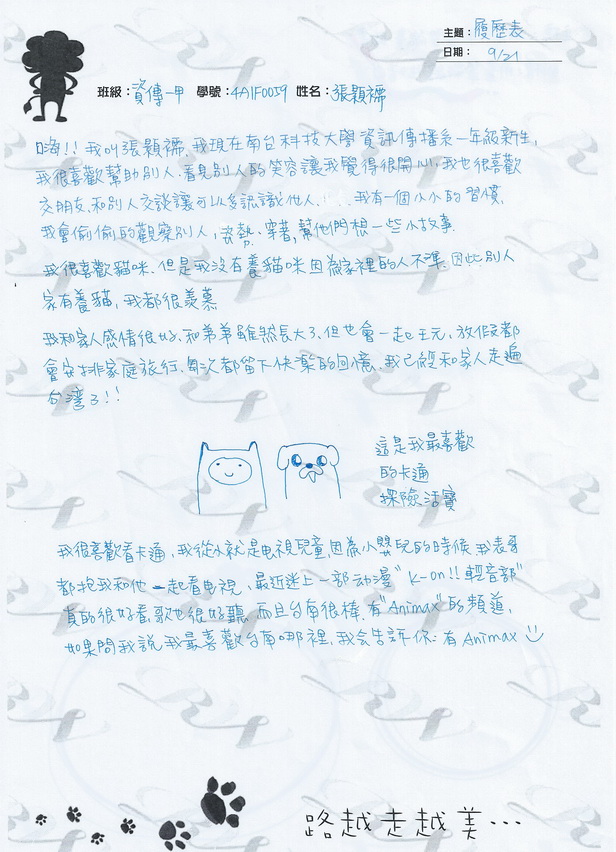 主題：履歷表
日期：9/21
班級：資傳一甲 學號：4A1F0059 姓名：張顥襦
嗨!! 我叫張顥襦，我現在南台科技大學資訊傳播系一年級新生，
我很喜歡幫助別人，看見別人的笑容讓我覺得很開心，我也很喜歡
交朋友，和別人交談讓可以多認識他人...我有一個小小的習慣，
我會偷偷的觀察別人，姿勢、穿著，幫他們想一些小故事。
我很喜歡貓咪，但是我沒有養貓咪因為家裡的人不準，因此別人
家有養貓，我都很羨慕
我和家人感情很好，和弟弟雖然長大了，但也會一起玩，放假都
會安排家庭旅行，每次都留下快樂的回憶，我已經和家人走遍
台灣了!!
這是我最喜歡
的卡通
探險活寶
我很喜歡看卡通，我從小就是電視兒童，因為小嬰兒的時候我表哥
都抱我和他一起看電視，最近迷上一部动漫"K-on!!輕音部"
真的很好看，歌也很好聽，而且台南很棒，有"Animax"的頻道，
如果問我說我最喜歡台南哪裡，我會告訴你：有Animax
路越走越美…